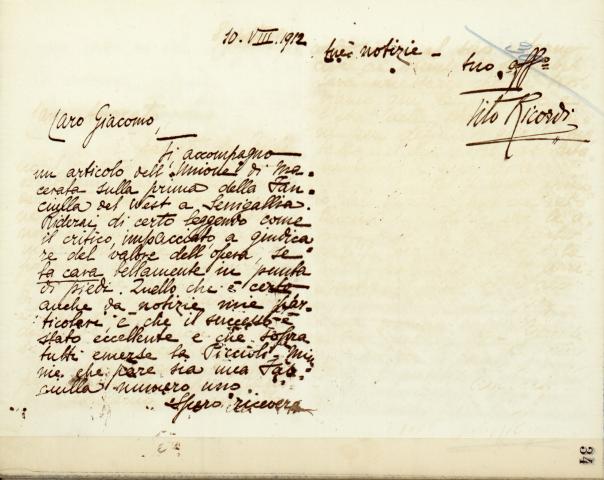 10. VIII. 1912
Caro Giacomo,
Ti accompagno
un articolo dell'Unione di Ma-
cerata sulla prima della Fan-
ciulla del West a Senigallia.
Riderai di certo leggendo come
il critico, impacciato a giudica-
re del valore dell'opera, se
la cava bellamente in punta
di piedi. Quello che è certo
anche da notizie mie par-
ticolari, è che il successo è
stato eccellente e che sopra
tutti emerse la Piccoli-
che pare sia una Fan-
ciulla numero uno.
Spero ricevere
tue notizie -
tuo aff.mo
Tito Ricordi
34